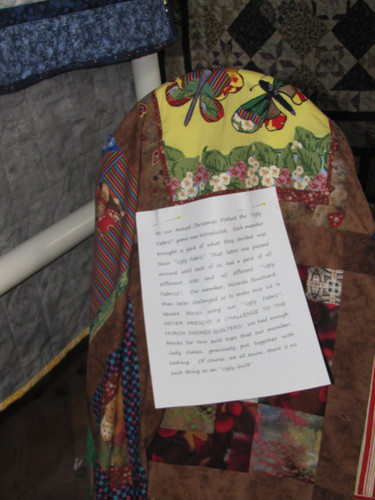 At our Annual Christmas Potluck the "Ugly
Fabric" game was introduced. Each member
brought a yard of what they decided was
their "Ugly Fabric". That fabric was passed
around until each of us had a yard of all
different cuts and of different "Ugly
Fabrics". Our member, Miranda
then later challenged us to make two 12 ½
blocks using our "Ugly Fabric".
NEVER PRESENT A CHALLENGE TO THE
HURON SHORES QUILTERS! We had enough
blocks for two quilt tops that our member,
Judy Oakes, graciously put together with
sashing. Of course, we all know, there is no
such thing as an "Ugly Quilt"